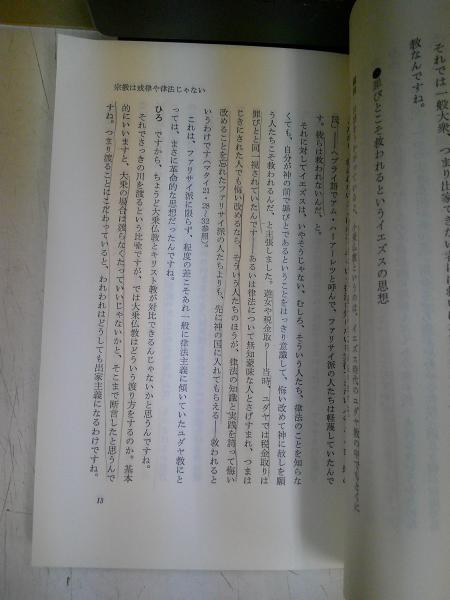 それでは一般大衆、つまり出家できない
教なんですね。
●罪びとこそ救われるというイエズスの思想
宗教は戒律や律法じゃない
民）――ヘブライ語でアム・ハーアーレツと呼んで、ファリサイ派の人たちは軽蔑していたんで
す。彼らは救われないんだ、と。
それに対してイエズスは、いやそうじゃない、むしろ、そういう人たち、律法のことを知らな
くても、自分が神の前で罪びとであるということをはっきり意識して、悔い改めて神に赦しを願
う人たちこそ救われるんだ、と主張しました。遊女や税金取り――当時、ユダヤでは税金取りは
罪びとと同一視されていたんです――あるいは律法について無知蒙昧な人とさげすまれ、つまは
じきにされていた人でも悔い改めるなら、そういう人たちのほうが、律法の知識と実践を誇って悔い
改めることを忘れたファリサイ派の人たちよりも、先に神の国に入れてもらえる――救われると
いうわけです（マタイ21・28～32参照）。
これは、ファリサイ派に限らず、程度の差こそあれ一般に律法主義に傾いていたユダヤ教にと
っては、まさに革命的な思想だったんですね。
ひろ　ですから、ちょうど大乗仏教とキリスト教が好比できるんじゃないかと思うんですね。
それでさっきの川を渡るという比喩ですが、では大乗仏教はどういう渡り方をするのか。基本
的にいいますと、大乗の場合は渡らなくたっていいじゃないかと、そこまで断言したと思うんで
すね。つまり渡ることにこだわっていると、われわれはどうしても出家主義になるわけですね。
13